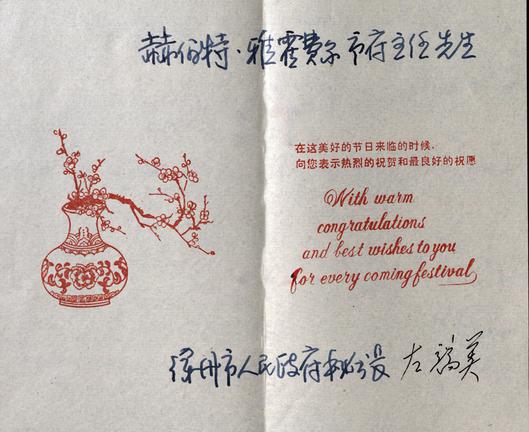 赫伯特·雅霍费尔 市府主任先生
在这美好的节日来临的时候,
向您表示热烈的祝贺和最良好的祝愿
With warm
congratulations
and best wishes to you
for every coming festival
徐州市人民政府秘书长